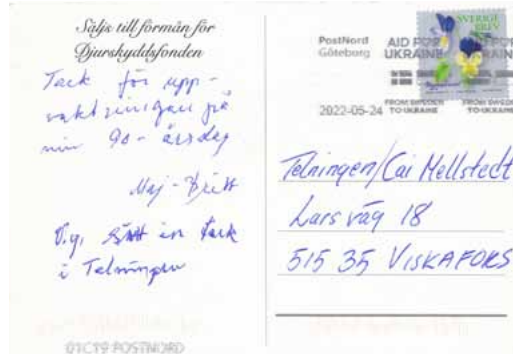 Säljs till förmån för
Djurskyddsfonden
Tack för upp-
vaktningen på
min 90-årsdag
Maj-Britt
V.g. sätt in tack
i Telningen
PostNord
Göteborg
AID FOR
UKRAINE
2022-05-24
FROM SWEDEN
TO UKRAINE
FROM SWEDEN
TO UKRAINE
SVERIGE
BREV
Telningen/Cai Hellstedt
Lars väg 18
515 35 VISKAFORS
01C19 POSTNORD